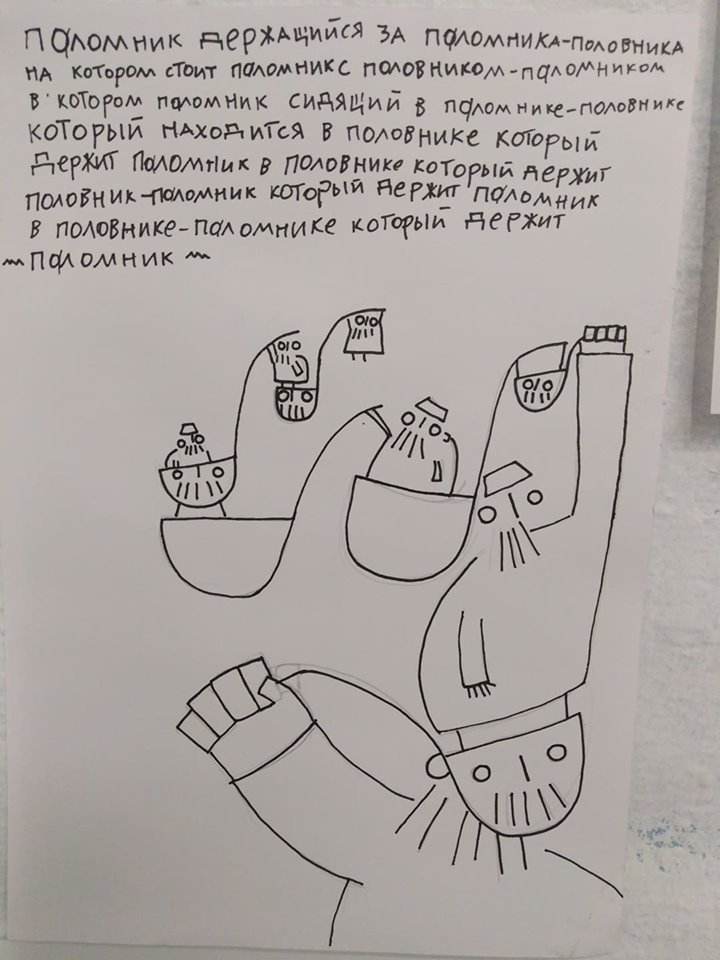 ПАЛОМНИК ДЕРЖАЩИЙСЯ ЗА ПАЛОМНИКА-ПОЛОВНИКА
НА КОТОРОМ СТОИТ ПАЛОМНИК С ПОЛОВНИКОМ-ПАЛОМНИКОМ
В КОТОРОМ ПАЛОМНИК СИДЯЩИЙ В ПАЛОМНИКЕ-ПОЛОВНИКЕ
КОТОРЫЙ НАХОДИТСЯ В ПОЛОВНИКЕ КОТОРЫЙ
ДЕРЖИТ ПАЛОМНИК В ПОЛОВНИКЕ КОТОРЫЙ ДЕРЖИТ
ПОЛОВНИК-ПАЛОМНИК КОТОРЫЙ ДЕРЖИТ ПАЛОМНИК
В ПОЛОВНИКЕ-ПАЛОМНИКЕ КОТОРЫЙ ДЕРЖИТ
~ПАЛОМНИК~